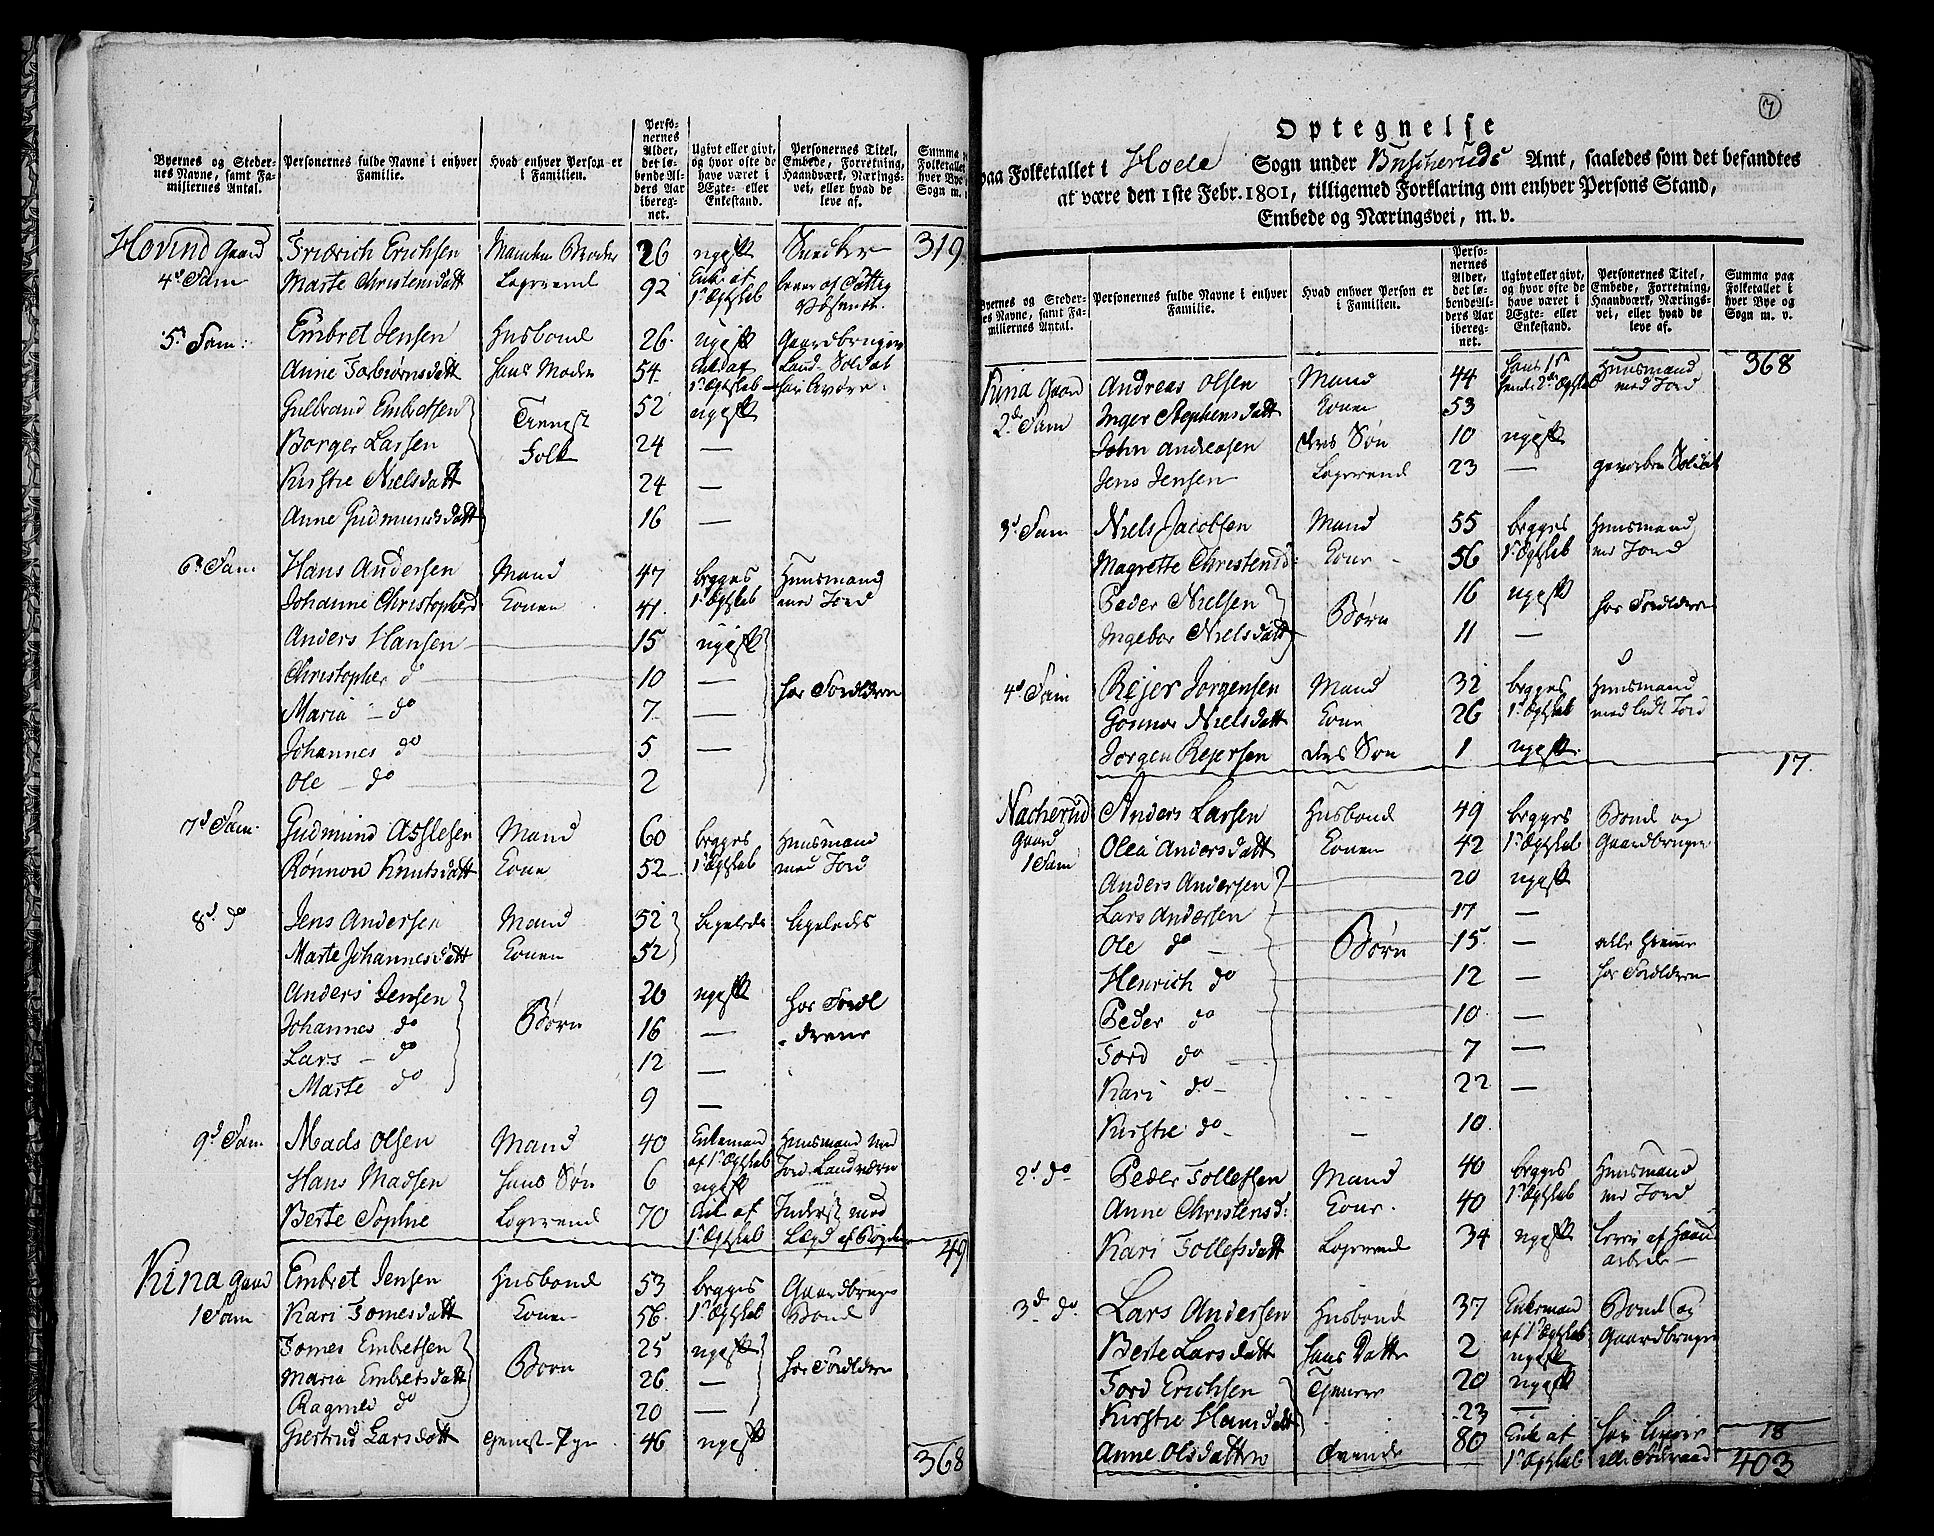 Byernes og Steder-nes Navne, samt Fa-miliernes Antal. | Personernes fulde Navne i enhver Familie. | Hvad enhver Person er i Familien. | Perso-nernes Alder, det lø-bende Al-ders Aar ibereg-net. | Ugivt eller givt, og hvor ofte de have været i Ægte- eller Enkestand. | Personernes Titel, Embede, Forretning, Haandværk, Nærings-vei, eller hvad de leve af. | Summa Folketallet hver Bye Sogn m.
Hovind Gaard | Fridrich Erichsen | 26 | ugift | Snecker | 319
4d Fam | Marte Christensdatt | Logerend | 92 | Enke af 1st Ægtskab
5. Fam: | Embret Jensen | Husbond | 26 | ugift | Gaardbruger
Anne Torbiørnsdatt | hans Moder | 54 | Enke af 1 Ægtskab | Land-Soldat
Gulbrand Embretsen | Tienest Folk | 52 | ugift
Borger Larsen | 24 | —
Kirstie Nielsdatt | 24 | —
Anne Gudmundsdatt | 16 | —
6d Fam | Hans Andersen | Mand | 47 | begges | Huusmand
Johanne Christopherd | Konen | 41 | 1st Ægtskab | med Jord
Anders Hansen | 15 | ugift
Christopher do | 10 | — | hos Forældrene
Maria — do | 7 | —
Johannes do | 5 | —
Ole — do | 2
7d Fam | Gudmund Asslesen | Mand | 60 | begges | Huusmand
Rønnou Knutsdatt | Kone | 52 | 1st Ægtskab | med Jord
8d do | Jens Andersen | Mand | 52 | ligeledes | ligeledes
Marte Johannesdatt | Konen | 52
Anders Jensen | Børn | 20 | ugift | hos Foræl
Johannes do | 16 | — | drene
Lars — do | 12 | —
Marte do | 9 | —
9d Fam | Mads Olsen | Mand | 40 | Enkemand af 1st Ægtskab | Huusmand med Jord Landværn
Hans Madsen | hans Søn | 6 | ugift
Berte Sophie | Logerend | 70 | Enk af 1st Ægtskab | Inderst med Lægd af Bygden | 49
Kina Gaard | Embret Jensen | Husbond | 53 | begges | Gaardbruger
1 Fam | Kari Tomesdatt | Konen | 56 | 1st Ægtskab | Bond
Tomes Embretsen | Børn | 25 | ugift | hos Forældrene
Maria Embretsdatt | 26 | —
Ragnild do | 20 | —
Giertrud Larsdatt | Tienest Pige | 46 | ugift
368
7
Optegnelse
paa Folketallet i Hoele Sogn under Buscheruds Amt, saaledes som det befandtes
at være den 1ste Febr. 1801, tilligemed Forklaring om enhver Persons Stand,
Embede og Næringsvei, m. v.
Byernes og Steder-nes Navne, samt Fa-miliernes Antal. | Personernes fulde Navne i enhver Familie. | Hvad enhver Person er i Familien. | Perso-nernes Alder, det lø-bende Al-ders Aar ibereg-net. | Ugivt eller givt, og hvor ofte de have været i Ægte- eller Enkestand. | Personernes Titel, Embede, Forretning, Haandværk, Nærings-vei, eller hvad de leve af. | Summa paa Folketallet i hver Bye og Sogn m. v.
Kina Gaard | Andreas Olsen | Mand | 44 | hans 1st hendes 2den Ægtskab | Huusmand med Jord | 368
2d Fam | Inger Stephensdatt | Konen | 53
John Andreasen | deres Søn | 10 | ugift
Jens Jensen | Logerend | 23 | — | geworben Soldat
3d Fam | Niels Jacobsen | Mand | 55 | begges | Huusmand
Magrette Christensd: | Kone | 56 | 1st Ægtskab | med Jord
Peder Nielsen | Børn | 16 | ugift | hos Forældrene
Ingebor Nielsdatt | 11 | —
4d Fam | Rejer Jorgensen | Mand | 32 | begges | Huusmand
Gosmor Nielsdatt | Kone | 26 | 1st Ægtskab | med lidt Jord
Jorgen Rejersen | deres Søn | 1 | ugift
17.
Nacherud | Anders Larsen | Husbond | 49 | begges | Bond og
Gaard | Olea Andersdatt | Konen | 42 | 1st Ægtskab | Gaardbruger
1 Fam | Anders Andersen | 20 | ugift
Lars Andersen | Børn | 17 | —
Ole do — | 15 | — | alle hiemme
Henrich do | 12 | — | hos Forældrene
Peder do | 10 | —
Tord do | 7 | —
Kari do — | 22 | —
Kirstie do — | 10
2d do | Peder Tollefsen | Mand | 40 | begges | Huusmand
Anne Christensd: | Kone | 40 | 1st Ægtskab | med Jord
Kari Tollefsdatt | Logerend | 34 | ugift | lever af Haand arbeide
3d do | Lars Andersen | Husbond | 37 | Enkemand af 1st Ægtskab | Bond og Gaardbruger
Berte Larsdatt | hans Datter | 2 | ugift
Tord Erichsen | Tienere | 20 | ugift
Kirstie Hansdatt | 23 | —
Anne Olsdatter | 80 | Enke af 1st Ægtskab | 18
403